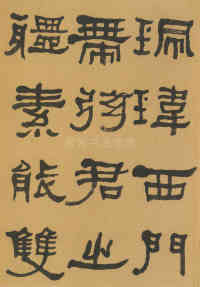 珮瑋西門
帶弦君之
體素能雙